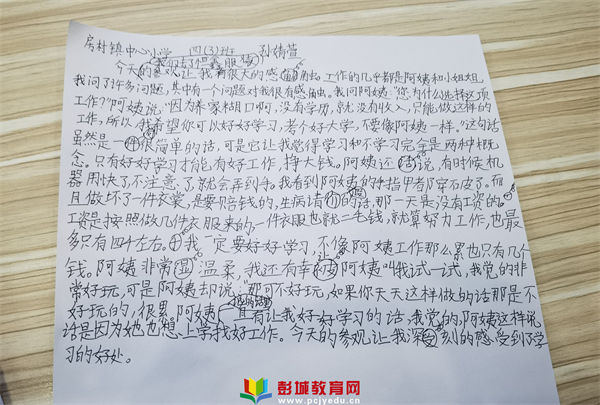 房村镇中心小学 四(3)班 孙婧萱
我们去了恒鑫服
今天的参观让我有很大的感 工作的几乎都是阿姨和小姐姐
我问了许多问题,其中有一个问题对我很有感触。我问阿姨:"您为什么选择这项
工作?"阿姨说:"因为养家糊口啊,没有学历,就没有收入,只能做这样的
工作,所以我希望你可以好好学习,考个好大学,不要像阿姨一样。"这句话
虽然是一件很简单的话,可是它让我觉得学习和不学习完全是两种概
念。只有好好学习才能有好工作,挣大钱。阿姨还话说,有时候机
器用快了,不注意了就会弄到手。我看到阿姨的手指甲都穿石皮了。而
且做坏了一件衣裳,是要赔钱的,生病请的话,那一天是没有工资的
工资是按照做几件衣服来的一件衣服也就二毛钱,就算努力工作,也最
多只有四千左右。我一定要好好学习,不像阿姨工作那么累也只有几个
钱。阿姨非常温柔,我还有幸被阿姨叫我试一试,我觉的非
常好玩,可是阿姨却说:"那可不好玩,如果你天天这样做的话那是不
好玩的,很累,阿姨 直有让我好好学习的话,我觉的,阿姨这样说
话是因为她也想上学找好工作。今天的参观让我深刻的感受到了学
习的好处。
彭城教育网
www.pcjyedu.cn